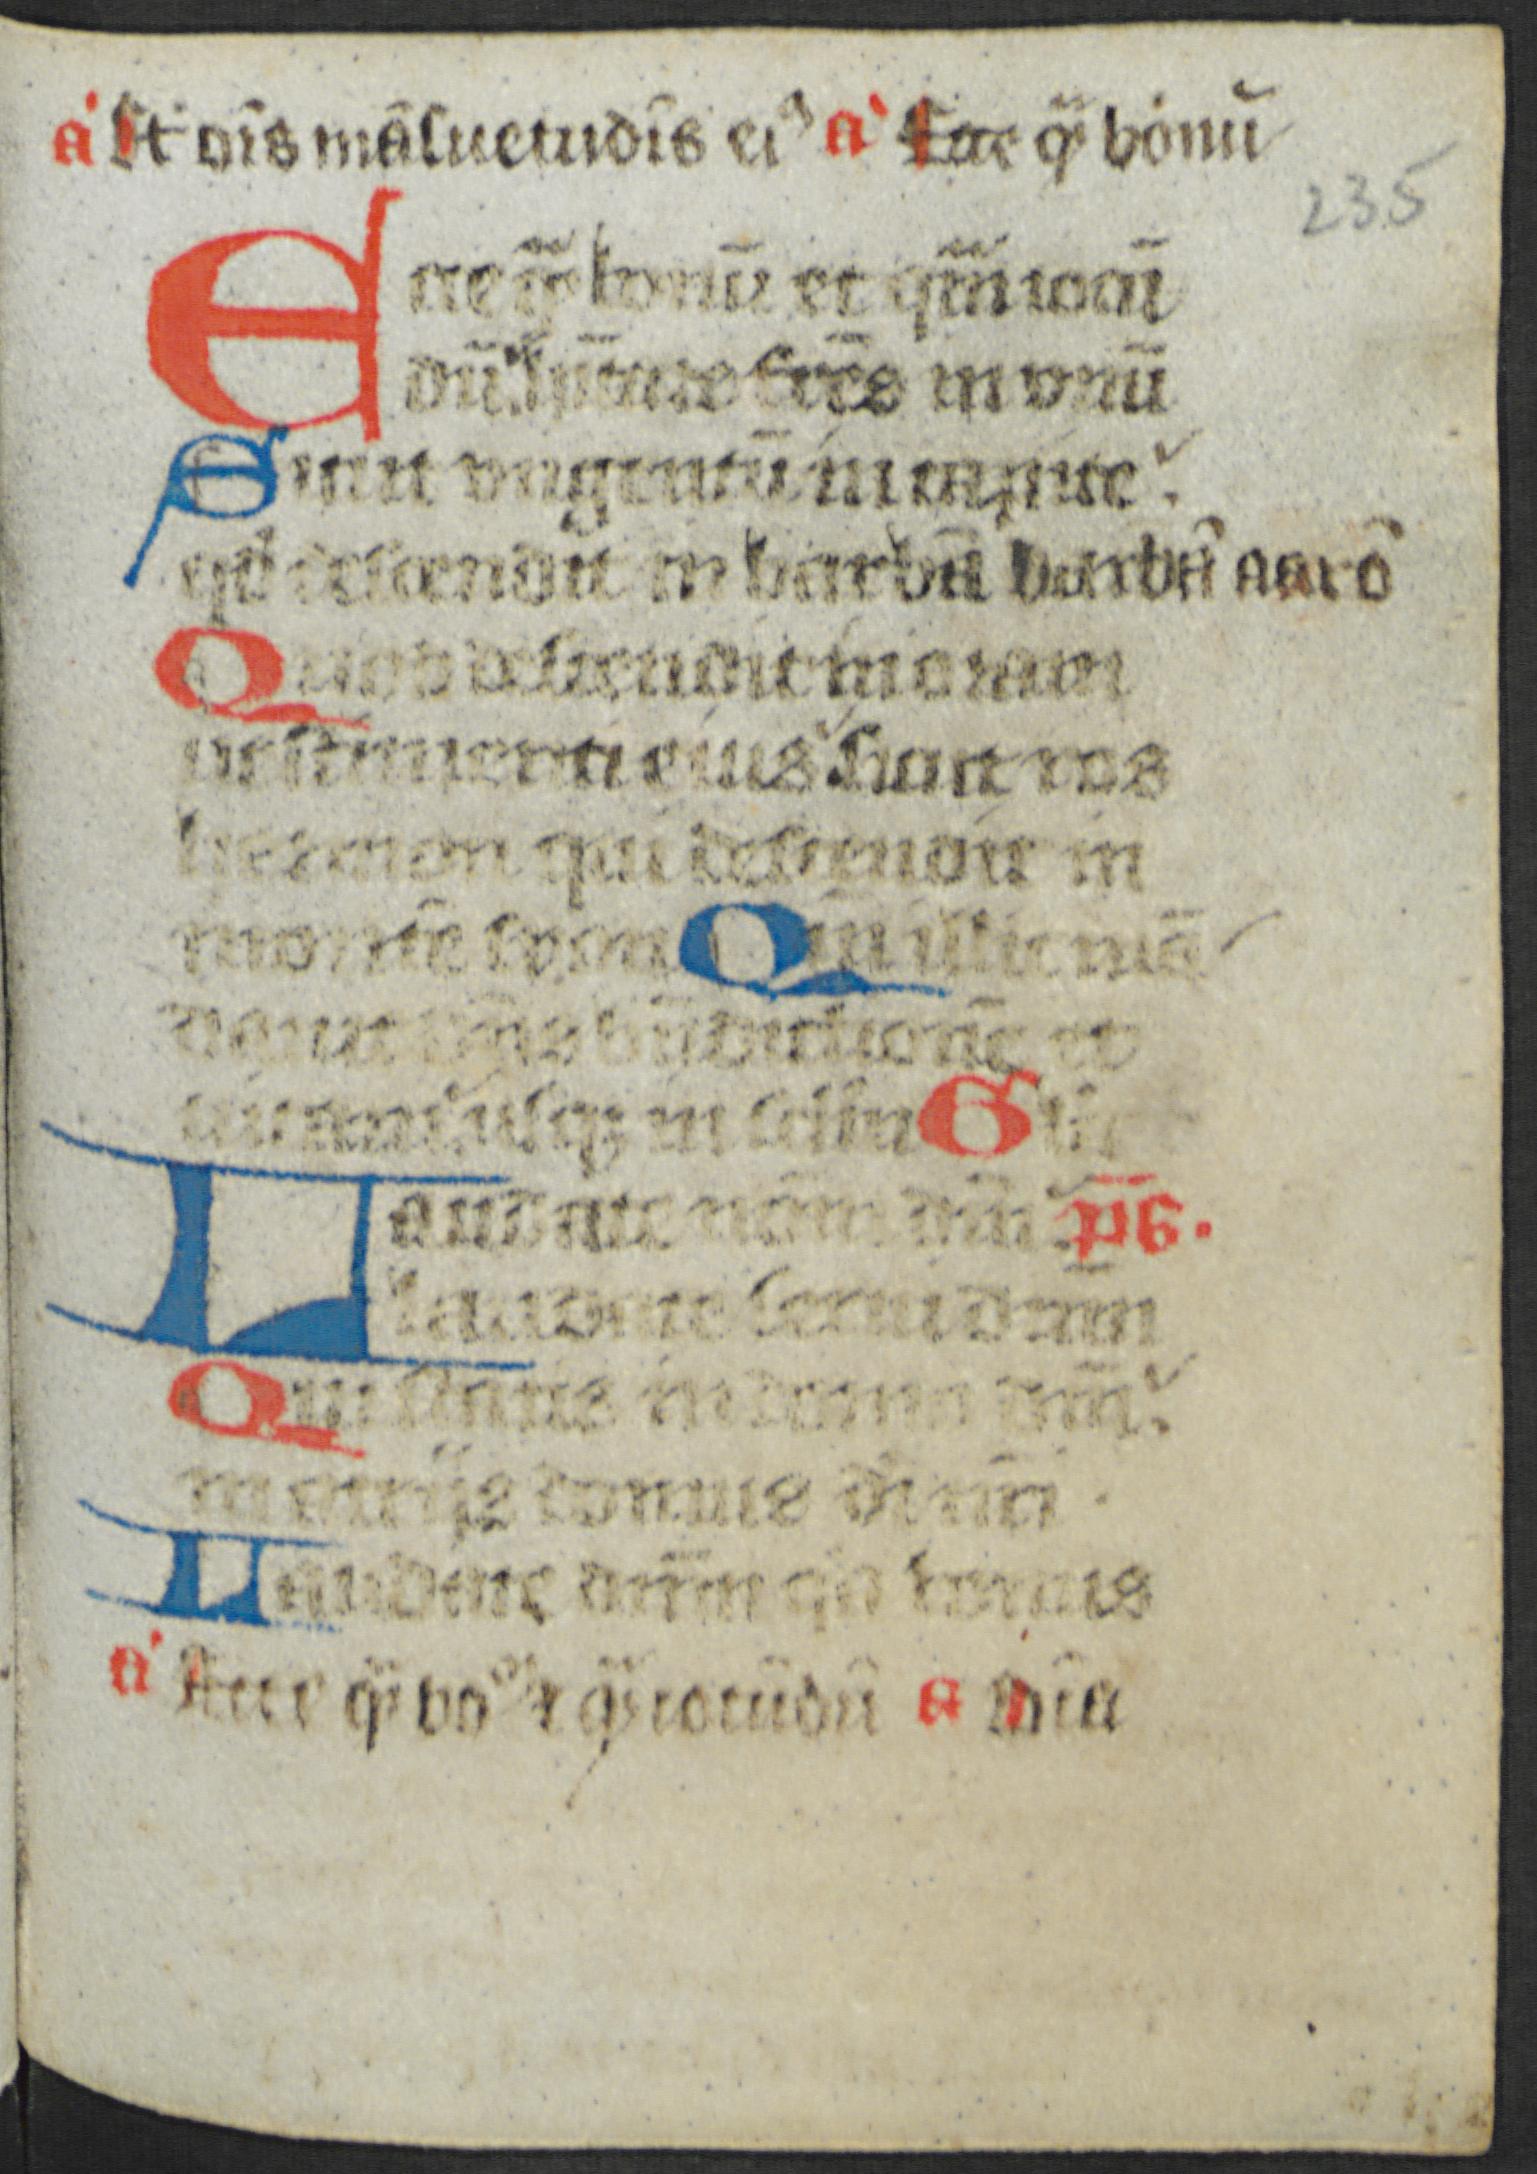 a Et oīs māsuetudīs ei⁹ a Ecce q̄ bonū
235
Ecce q̄ bonū et q̄m iocū
dū habitare frēs in vnū
Sicut vngentū in capite
qd̓ descendit in barbā barbā aarō
Quod descendit in oram
vestimenti eius sicut ros
hermon qui descendit in
montē syon Qm̄ illic mā
dauit dn̄s bn̄dictionē et
vitam usq; in sclm Glī
Laudate nom̄ dn̄i p̄s.
laudate serui dn̄m
Qui statis in domo dn̄i
in atrijs domus dī nr̄i
Laudate dn̄m qd̓ bonus
a Ecce q̄ bo⁹ ⁊ q̄ iocūdū a Oīa